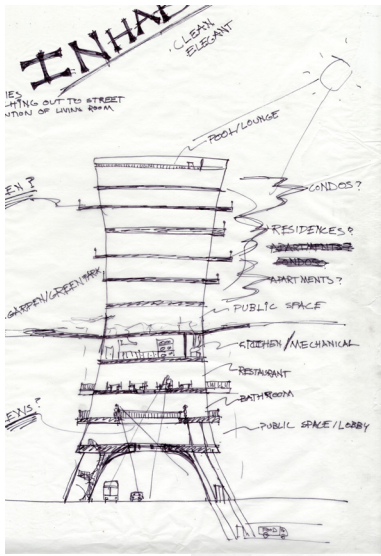 INHA
·CLEAN
ELEGANT
IES
CHING OUT TO STREET
NTION OF LIVING ROOM
POOL/LOUNGE
EN?
CONDOS?
RESIDENCES?
APARTMENTS?
GARDEN/GREENPARK
PUBLIC SPACE
KITCHEN/MECHANICAL
RESTAURANT
BATHROOM
EWS?
PUBLIC SPACE/LOBBY